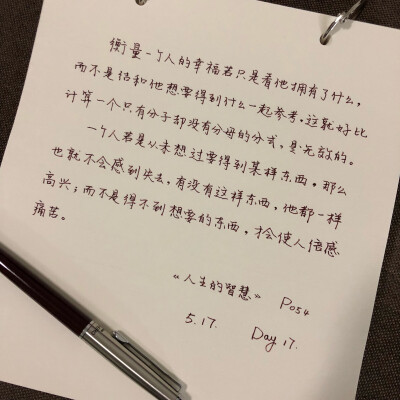 衡量一个人的幸福若只是看他拥有了什么,
而不是估和他想要得到什么一起参考.这就好比
计算一个只有分子却没有分母的分式,是无敌的。
一个人若是从未想过要得到某样东西。那么
也就不会感到失去,有没有这样东西,他都一样
高兴;而不是得不到想要的东西,才会使人倍感
痛苦。
“人生的智慧” P054
5.17. Day 17.